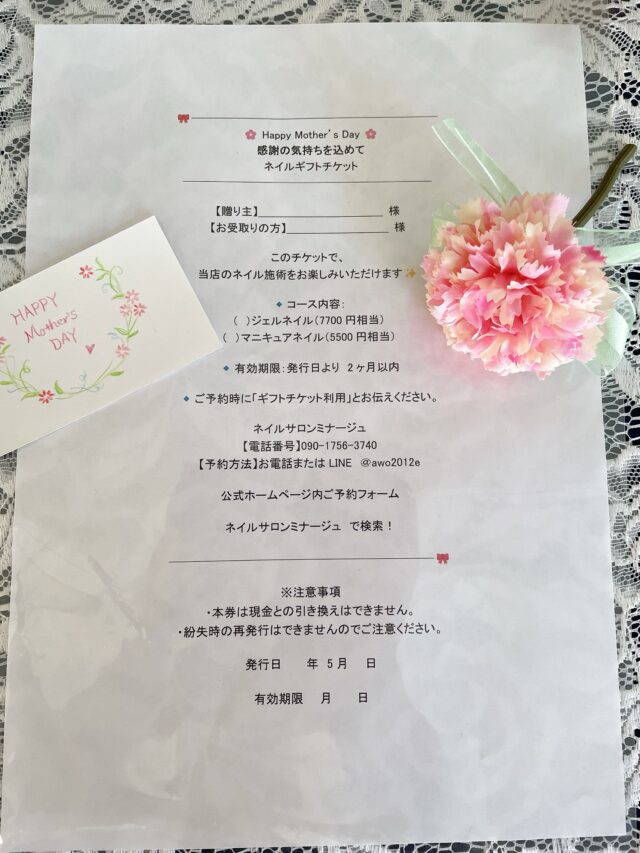 🌸 Happy Mother's Day 🌸
感謝の気持ちを込めて
ネイルギフトチケット
【贈り主】____________________ 様
【お受取りの方】________________ 様
このチケットで、
当店のネイル施術をお楽しみいただけます✨
🔹コース内容：
(　)ジェルネイル（7700円相当）
(　)マニキュアネイル（5500円相当）
🔹有効期限：発行日より 2ヶ月以内
🔹ご予約時に「ギフトチケット利用」とお伝えください。
ネイルサロンミナージュ
【電話番号】090-1756-3740
【予約方法】お電話または LINE @awo2012e
公式ホームページ内ご予約フォーム
ネイルサロンミナージュ で検索！
※注意事項
・本券は現金との引き換えはできません。
・紛失時の再発行はできませんのでご注意ください。
発行日　　年 5月　日
有効期限　月　　日
HAPPY
Mother's
DAY